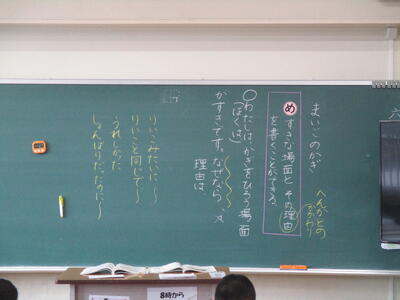 まいごのかぎ
へんかとの
かかわり
め すきな場面と、その理由
を書くことができる。
○わたしは、かぎをひろう場面
(ぼくは)
がすきです。なぜなら、
理由は、
りいこみたいに〜
りいこと同じで〜
うれしかった
8時から